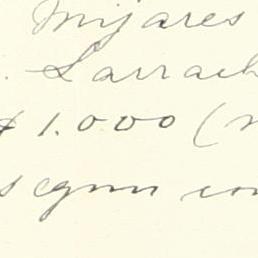 Mijares
Larrach
$ 1.000 (
segun con